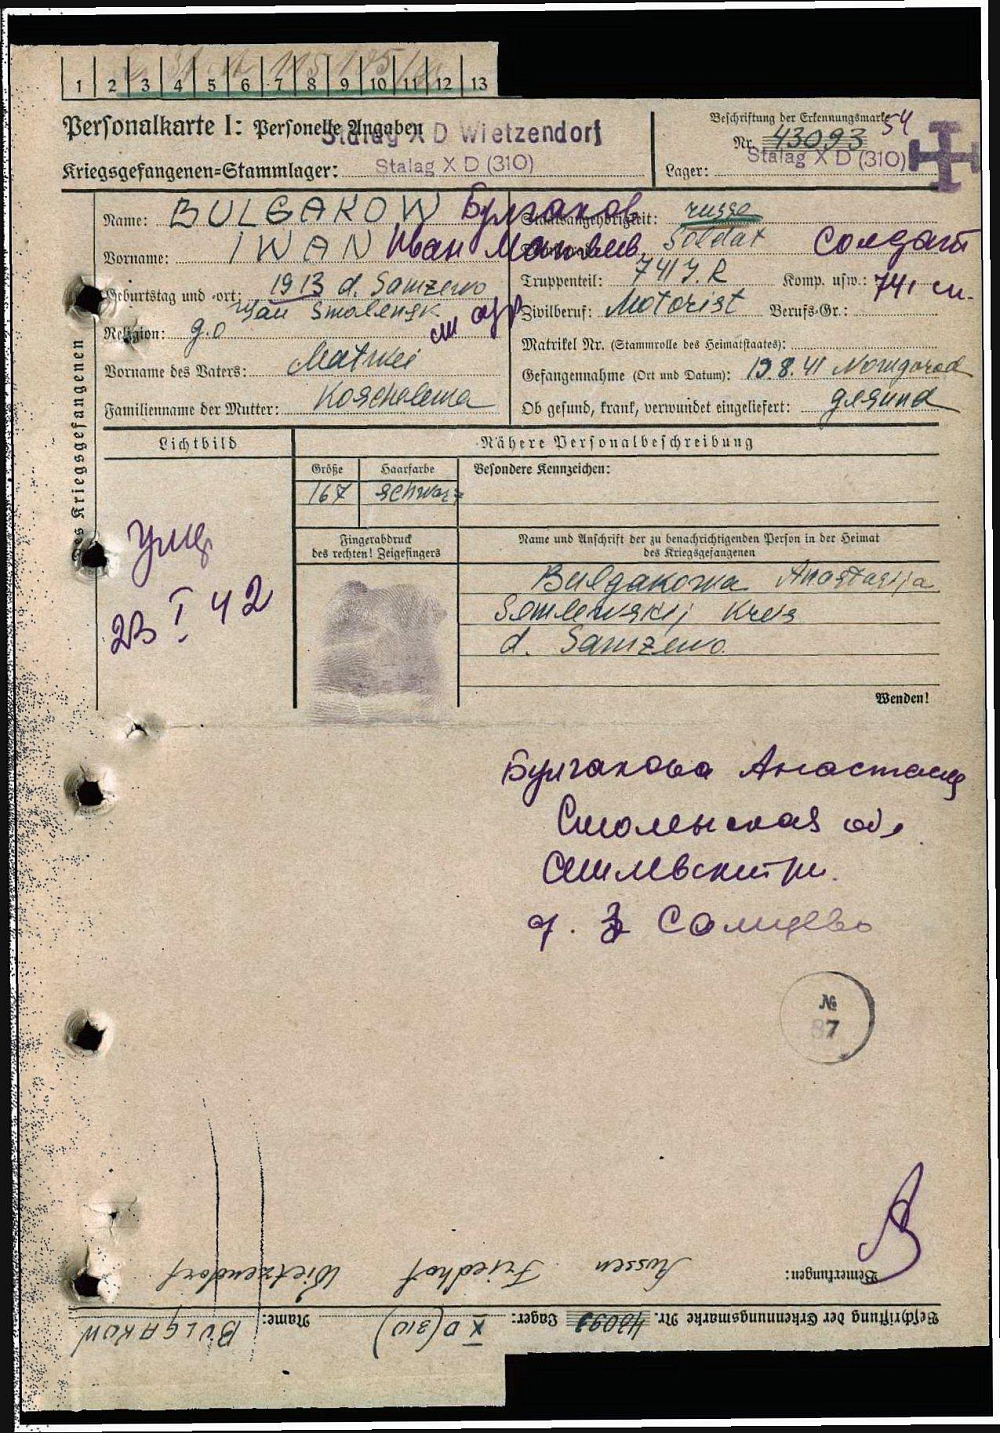 1 2 3 4 5 6 7 8 9 10 11 12 13
Personalkarte I: Personelle Angaben
Stalag X D Wietzendorf
Kriegsgefangenen=Stammlager: Stalag X D (310)
Beschriftung der Erkennungsmarke
54
Nr. 43093
Lager: Stalag X D (310)
Name: BULGAKOW Булгаков
Vorname: IWAN Иван
Geburtstag und =ort: 1913 d. Samzewo
Smolensk
Religion: g.o
Vorname des Vaters: Matwei
Familienname der Mutter:
Staatsangehörigkeit: russe
Soldat Солдат
Truppenteil: 741 J.R Komp. usw.: 741 сп.
Zivilberuf: Motorist Berufs=Gr.:
Matrikel Nr. (Stammrolle des Heimatstaates):
Gefangennahme (Ort und Datum): 19.8.41 Nowgorod
Ob gesund, krank, verwundet eingeliefert: gesund
des Kriegsgefangenen
Lichtbild
Nähere Personalbeschreibung
Größe Haarfarbe Besondere Kennzeichen:
167 schwarz
Fingerabdruck
des rechten! Zeigefingers
Name und Anschrift der zu benachrichtigenden Person in der Heimat
des Kriegsgefangenen
Bulgakowa Anastasija
Semlewskij Kreis
d. Samzewo
Wenden!
23 I 42
Булгакова Анастасия
Смоленская об.
д. З Самцево
№
87
Bemerkungen:
Russen Friedhof Wietzendorf
Beschriftung der Erkennungsmarke Nr. 43093 Lager: X D (310) Name: BULGAKOW